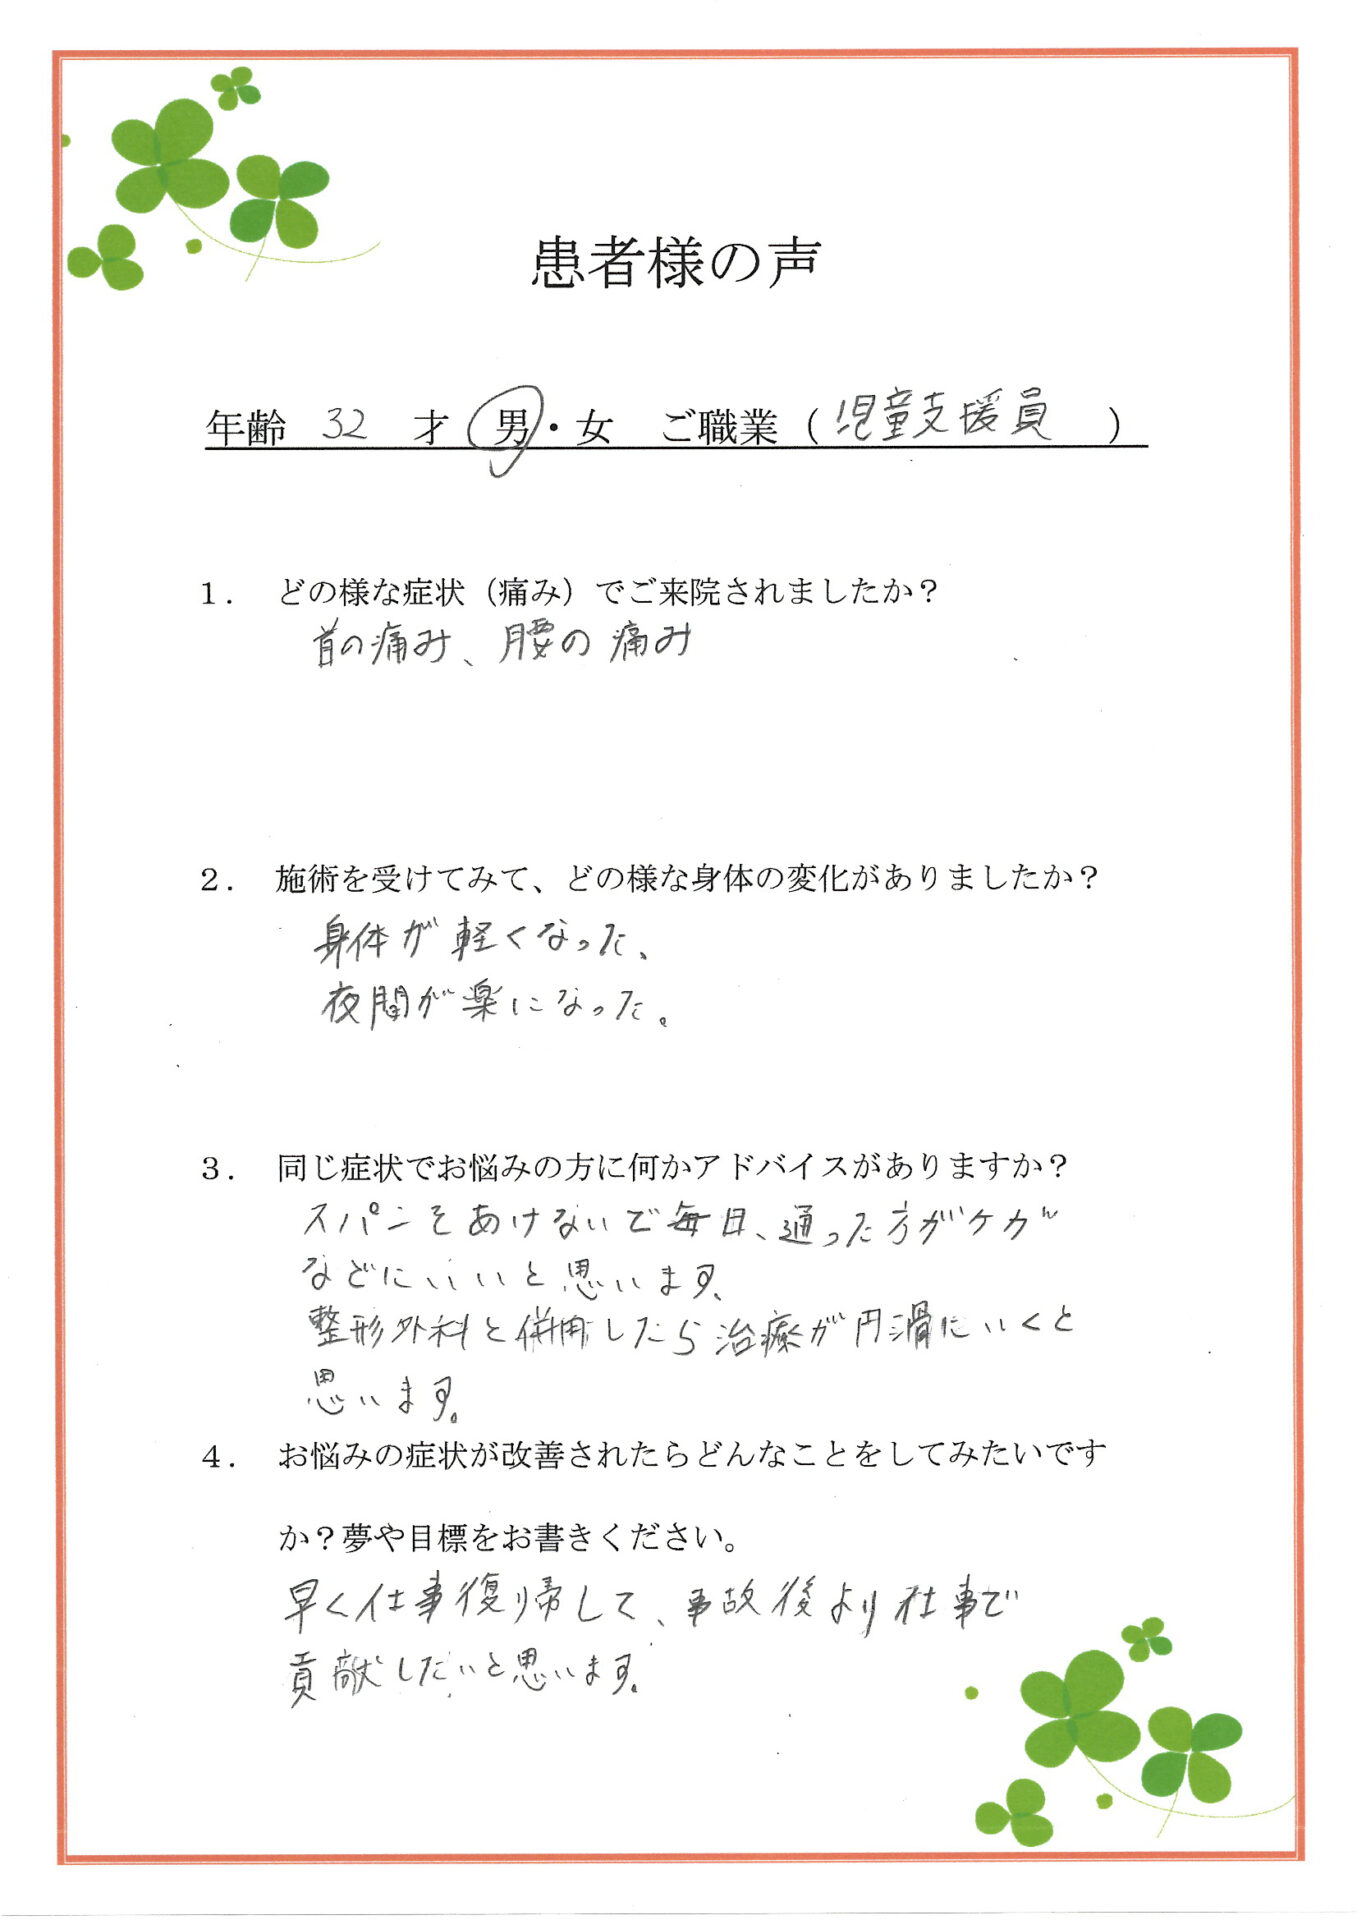 患者様の声
年齢 32 才 男・女 ご職業（児童支援員 ）
１． どの様な症状（痛み）でご来院されましたか？
首の痛み、腰の痛み
２． 施術を受けてみて、どの様な身体の変化がありましたか？
身体が軽くなった、
夜間が楽になった。
３． 同じ症状でお悩みの方に何かアドバイスがありますか？
スパンをあけないで毎日、通った方がケガ
などにいいと思います、
整形外科と併用したら治療が円滑にいくと
思います。
４． お悩みの症状が改善されたらどんなことをしてみたいです
か？夢や目標をお書きください。
早く仕事復帰して、事故後より仕事で
貢献したいと思います。